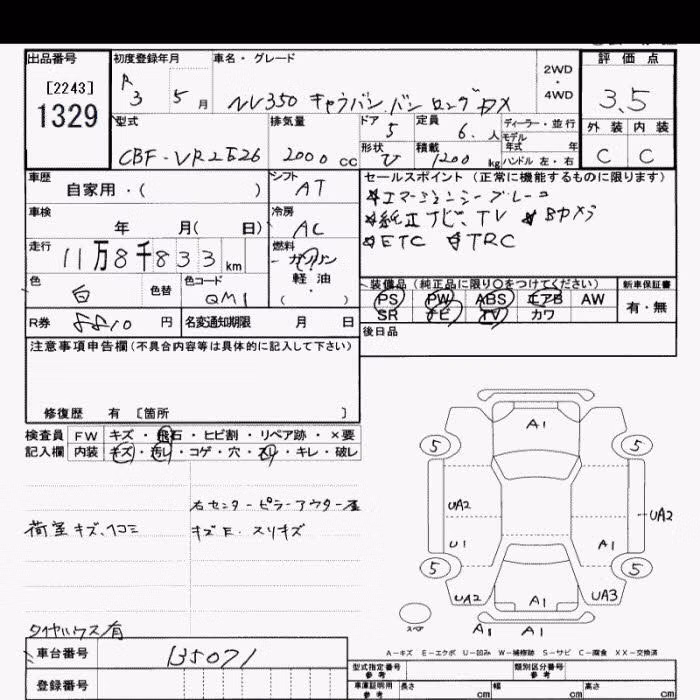 出品番号
[2243]
1329
初度登録年月
R3 5月
車名・グレード
NV350 キャラバン バン ロングDX
2WD
・
4WD
評価点
3.5
外装 内装
C C
型式
CBF-VR2E26
排気量
2000 cc
ドア
5
定員
6.人
形状
V
積載
1200 kg
ディーラー・並行
モデル
年式 年
ハンドル 左・右
車歴
自家用・( )
シフト
AT
車検
年 月( 日)
冷房
AC
走行
11万8千833km
燃料
ガソリン
軽油・
( )
色
白
色替
色コード
QM1
R券
8810円
名変通知期限 月 日
セールスポイント(正常に機能するものに限ります)
☆エマージェンシーブレーキ
☆純正ナビ、TV ☆Bカメラ
☆ETC ☆TRC
装備品(純正品に限り○をつけてください)
PS PW ABS エアB AW
SR ナビ TV カワ
新車保証書
有・無
後日品
注意事項申告欄(不具合内容等は具体的に記入して下さい)
修復歴 有 [箇所 ]
検査員 FW キズ・飛石・ヒビ割・リペア跡・×要
記入欄 内装 キズ・汚レ・コゲ・穴・スリ・キレ・破レ
右センターピラーアウター
荷室キズ、ヘコミ
キズE. スリキズ
タイヤハウス有
車台番号
135071
登録番号
A1
5 5
UA2
UA2
U1
A1
5 5
UA2
A1
UA3
スペア
A1 A1
A-キズ E-エクボ U-凹み W-補修跡 S-サビ C-腐食 XX-交換済
型式指定番号
参考
類別区分番号
参考
車庫証明用
参考
長さ cm
幅 cm
高さ cm